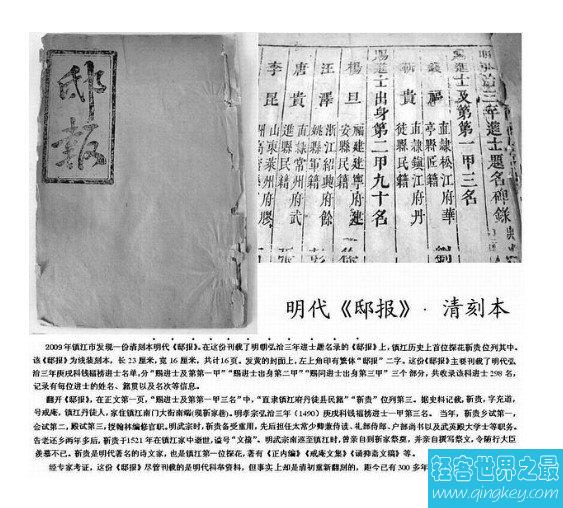 邸報
治三年進士題名碑錄
賜進士及第第一甲三名
錢福 直隸松江府華
亭縣匠籍
靳貴 直隸鎮江府丹
徒縣民籍
賜進士出身第二甲九十名
楊旦 福建建寧府建
安縣民籍
汪澤 浙江紹興府餘
姚縣軍籍
唐貴 直隸常州府武
進縣民籍
李昆 山東萊州府膠
明代《邸报》· 清刻本
2009年镇江市发现一份清刻本明代《邸报》。在这份刊载了明朝弘治三年进士题名录的《邸报》上，镇江历史上首位探花靳贵位列其中。
该《邸报》为线装刻本，长 23 厘米，宽 16 厘米，共计16页。发黄的封面上，左上角印有繁体“邸报”二字。这份《邸报》主要刊载了明代弘
治三年庚戌科钱福榜进士名单，分“赐进士及第第一甲”“赐进士出身第二甲”“赐同进士出身第三甲”三个部分，共收录该科进士 298 名，
记录有每位进士的姓名、籍贯以及名次等信息。
翻开《邸报》，在正文第一页，“赐进士及第第一甲三名”中，“直隶镇江府丹徒县民籍”“靳贵”位列第三。据史料记载，靳贵，字充道，
号戒庵，镇江丹徒人，家住镇江南门大街南端（现靳家巷）。明孝宗弘治三年（1490）庚戌科钱福榜进士一甲第三名。 当年，靳贵乡试第一，
会试第二，殿试第三，授翰林编修官职。明武宗时，靳贵备受重用，先后担任太常少卿兼侍读、礼部侍郎、户部尚书以及武英殿大学士等职务。
告老还乡两年多后，靳贵于1521 年在镇江家中逝世，谥号“文僖”。明武宗南巡至镇江时，曾亲自到靳家祭奠，并亲自撰写祭文，令随行大臣
羡慕不已。靳贵是明代著名的诗文家，也是镇江第一位探花，著有《正内编》《戒庵文集》《诵抑斋文稿》等。
经专家考证，这份《邸报》尽管刊载的是明代科举资料，但事实上却是清初重新翻刻的，距今已有 300 多年
轻客世界之最
www.qingkey.com